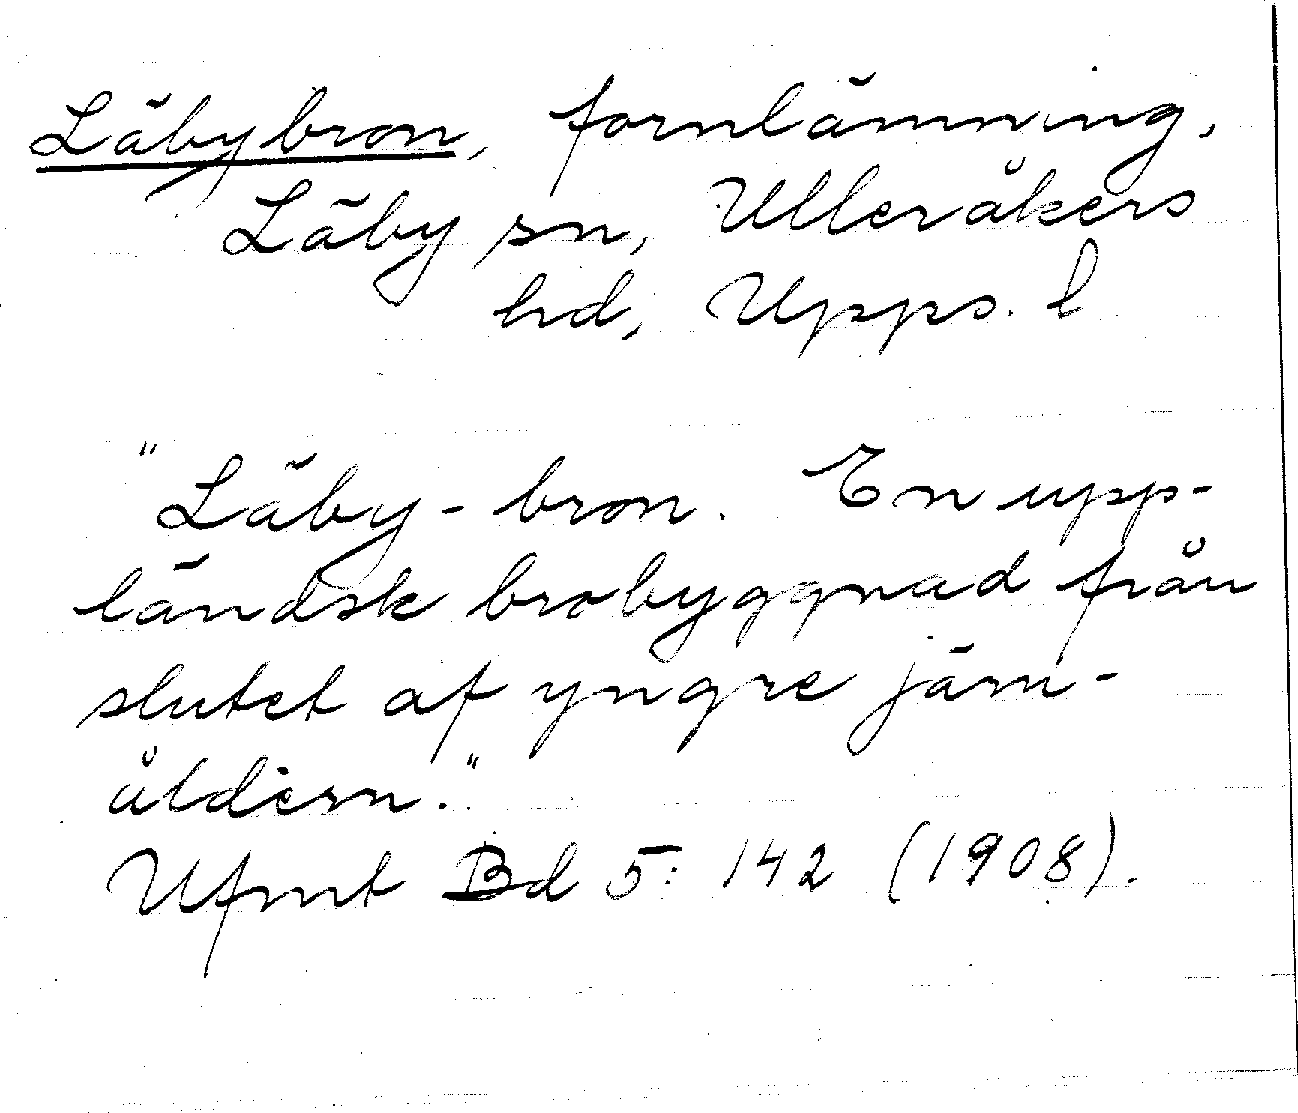 Läbybron, fornlämning,
Läby sn, Ulleråkers
hd, Upps. l
"Läby-bron. En upp-
ländsk brobyggnad från
slutet af yngre järn-
åldern."
Ufmt Bd 5: 142 (1908).